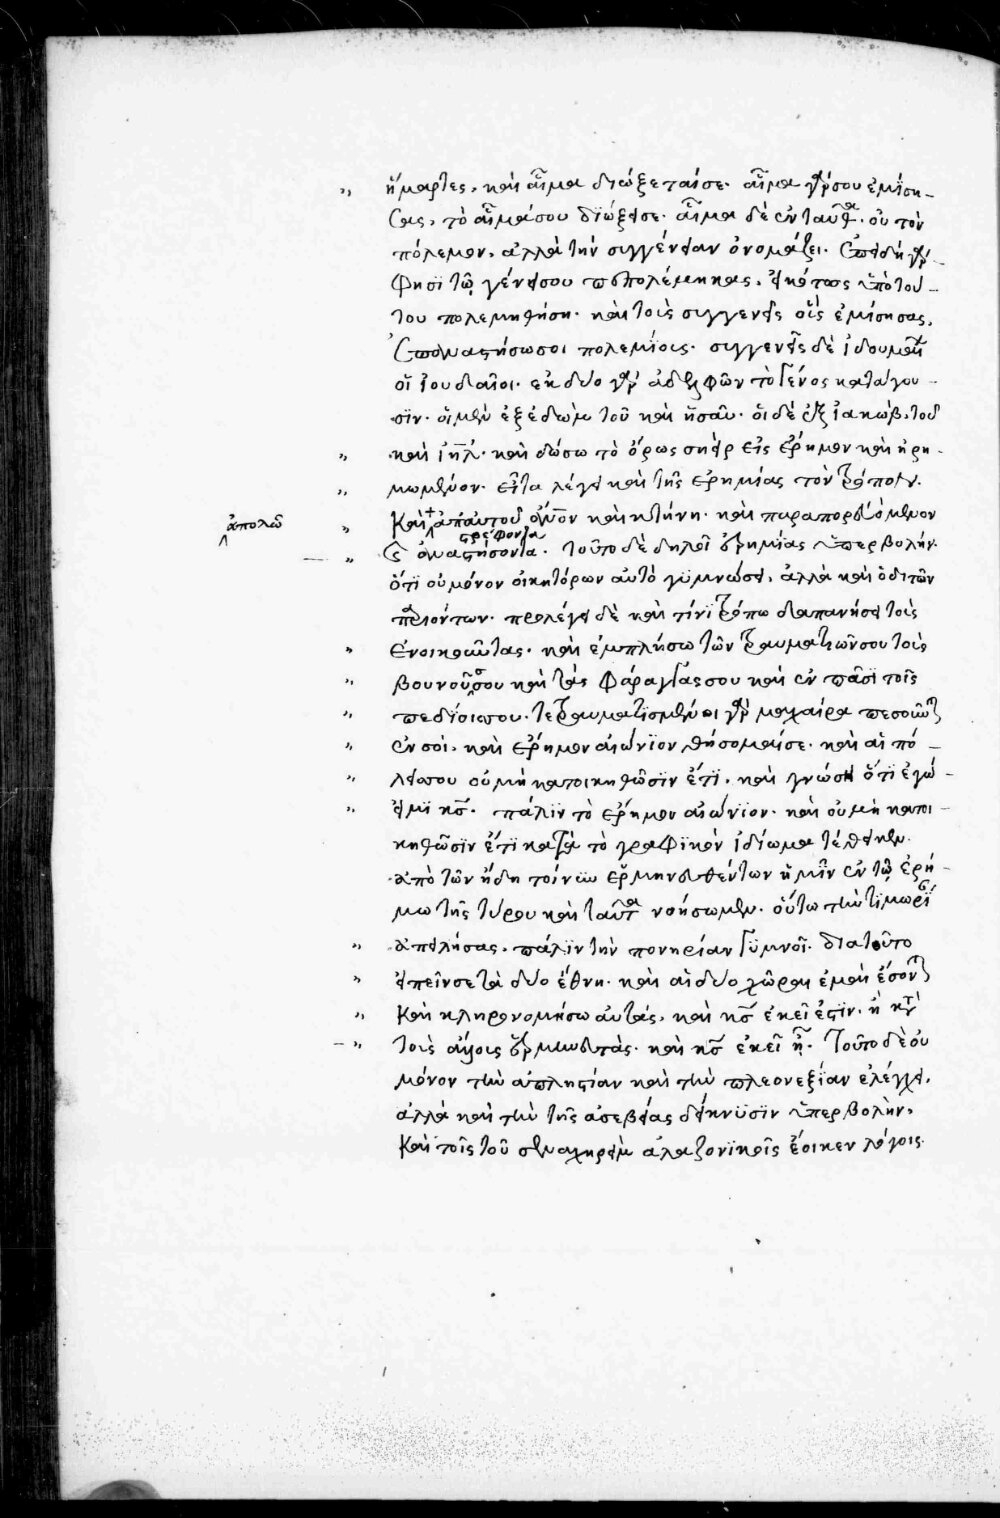 ἥμαρτες, καὶ αἷμα διώξεταί σε· αἷμα γάρ σου ἐμίση-
σας, τὸ αἷμά σου διώξεσε· αἷμα δὲ ἐνταῦθα· οὐ τὸν
πόλεμον, ἀλλὰ τὴν συγγένειαν ὀνομάζει· ἐπειδὴ γάρ
φησι τῷ γένει σου πεπολέμηκας, εἰκότως ὑπὸ τού-
του πολεμηθήσῃ· καὶ τοῖς συγγενεῖς οἷς ἐμίσησας,
πολεμίοις· συγγενεῖς δὲ ἰδουμαῖοι
οἱ ἰουδαῖοι· ἐκ δύο γὰρ ἀδελφῶν τὸ γένος κατάγου-
σιν· οἱ μὲν ἐξ ἐδὼμ τοῦ καὶ ἡσαῦ· οἱ δὲ ἐξ ἰακώβ, τοῦ
καὶ ἰηλ· καὶ δώσω τὸ ὄρος σηεὶρ εἰς ἔρημον καὶ ἠρη-
μωμένον· εἶτα λέγει καὶ τῆς ἐρημίας τὸν τρόπον·
ἀπολῶ
καὶ ἀπ' αὐτοῦ ἀνον καὶ κτήνη· καὶ παραπορευόμενον
στρέφοντα
καὶ ἀναστήσοντα· τοῦτο δὲ δηλοῖ ἐρημίας ὑπερβολήν·
ὅτι οὐ μόνον οἰκητόρων αὐτὸ γυμνώσει, ἀλλὰ καὶ ὁδιτῶν
παριόντων· προλέγει δὲ καὶ τίνι τρόπω δαπανήσει τοὺς
ἐνοικοῦντας· καὶ ἐμπλήσω τῶν τραυματιῶν σου τοὺς
βουνούς σου καὶ τὰς φάραγγάς σου καὶ ἐν πᾶσι τοῖς
πεδίοις σου· τετραυματισμένοι γὰρ μαχαίρα πεσοῦνται
ἐν σοί, καὶ ἔρημον αἰώνιον θήσομαί σε· καὶ αἱ πό-
λεις σου οὐ μὴ κατοικηθῶσιν ἔτι, καὶ γνώση ὅτι ἐγώ
εἰμι κς· πάλιν τὸ ἔρημον αἰώνιον· καὶ οὐ μὴ κατοι-
κηθῶσιν ἔτι κατὰ τὸ γραφικὸν ἰδίωμα τέθεικεν·
ἀπὸ τῶν ἤδη τοίνυν ἑρμηνευθέντων ἡμῖν ἐν τῷ ἐρή-
μω τῆς τύρου καὶ ταῦτα νοήσωμεν· οὕτω τὴν τιμωρίαν
ἀπειλήσας, πάλιν τὴν πονηρίαν γυμνοῖ· διὰ τοῦτο
εἰπεῖν σε τὰ δύο ἔθνη· καὶ αἱ δύο χῶραι ἐμαὶ ἔσονται
καὶ κληρονομήσω αὐτάς, καὶ κς ἐκεῖ ἐστιν· ἢ κατὰ
τοὺς ἄλλους ἑρμηνευτάς· καὶ κς ἐκεῖ ἦν· τοῦτο δὲ οὐ
μόνον τὴν ἀπληστίαν καὶ τὴν πλεονεξίαν ἐλέγχει,
ἀλλὰ καὶ τὴν τῆς ἀσεβείας δείκνυσιν ὑπερβολήν,
καὶ τοῖς τοῦ σεναχηρεὶμ ἀλαζονικοῖς ἔοικεν λόγοις